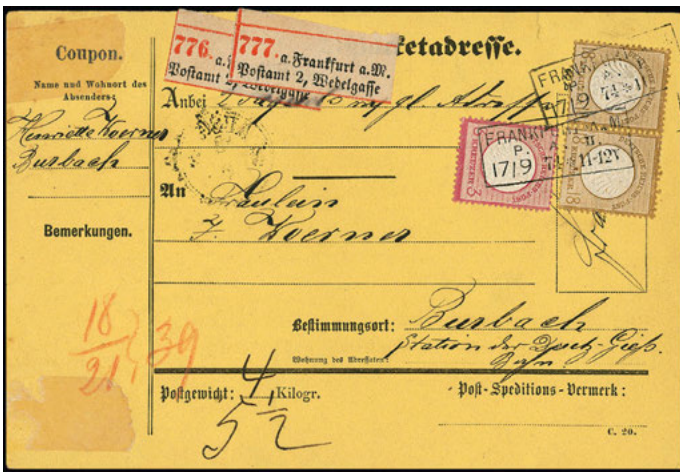 Coupon.
Name und Wohnort des
Absenders:
Henriette Koerner
Burbach
Bemerkungen.
776. a.
Postamt 2, Wedelgasse
777. a. Frankfurt a.M.
Postamt 2, Wedelgasse
ketadresse.
Anbei 2
FRANKF
17/9
74
FRANKF
P. A. II.
17/9 74. 11-12V
3
KREUZER
An Fräulein
J. Koerner
Bestimmungsort: Burbach
Station der Deutz-Gieß.
Bahn
Wohnung des Adressaten:
18
21
39
Postgewicht: 4 Kilogr.
5 1/2
Post-Speditions-Vermerk:
C. 20.